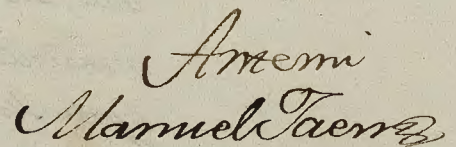 Antemi
Manuel Jaen